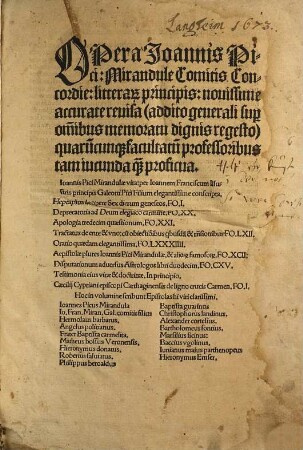 Langheim 1673.
OPera Joannis Pi
ci: Mirandule Comitis Con
cordie: litterarū principis: nouissime
accurate reuisa (addito generali sup
omībus memoratu dignis regesto)
quarūcunqꝫ facultatū professoribus
tam iucunda qꝫ proficua.
Ioannis Pici Mirandulæ vita: per Ioannem Franciscum illu
stris principis Galeotti Pici filium elegantissime conscripta.
Heptaplus de opere Sex dierum geneseos, FO, I,
Deprecatoria ad Deum elegiaco carmine, FO, XX,
Apologia tredecim quæstionum, FO, XXI,
Tractatus de ente & vno: cū obiectiōibus qbusdā & rñsionibus FO, LXII,
Oratio quædam elegantissima, FO, LXXXIIII,
Aepistolæ plures Ioannis Pici Mirandulæ, & alioꝝ famosoꝝ, FO. XCII
Disputationum aduersus Astrologos libri duodecim, FO, CXV,
Testimonia eius vitæ & doctrinæ, In principio,
Cæcilij Cypriani episcopi Carthaginensis de ligno crucis Carmen, FO, I,
Hoc in volumine scribunt Epistolas hi viri clarissimi,
Ioannes Picus Mirandula
Io, Fran, Miran, Gal, comitis filius
Hermolaus barbarus,
Angelus politianus,
Frater Baptista carmelita,
Matheus bossus Veronensis,
Hieronymus donatus,
Robertus saluiatus,
Philippus beroaldus
Baptista guarinus
Christophorus landinus,
Alexander cortesius,
Bartholomeus fontius,
Marsilius ficinus:
Baccius vgolinus,
Iunianus maius parthenopeus
Hieronymus Emser,